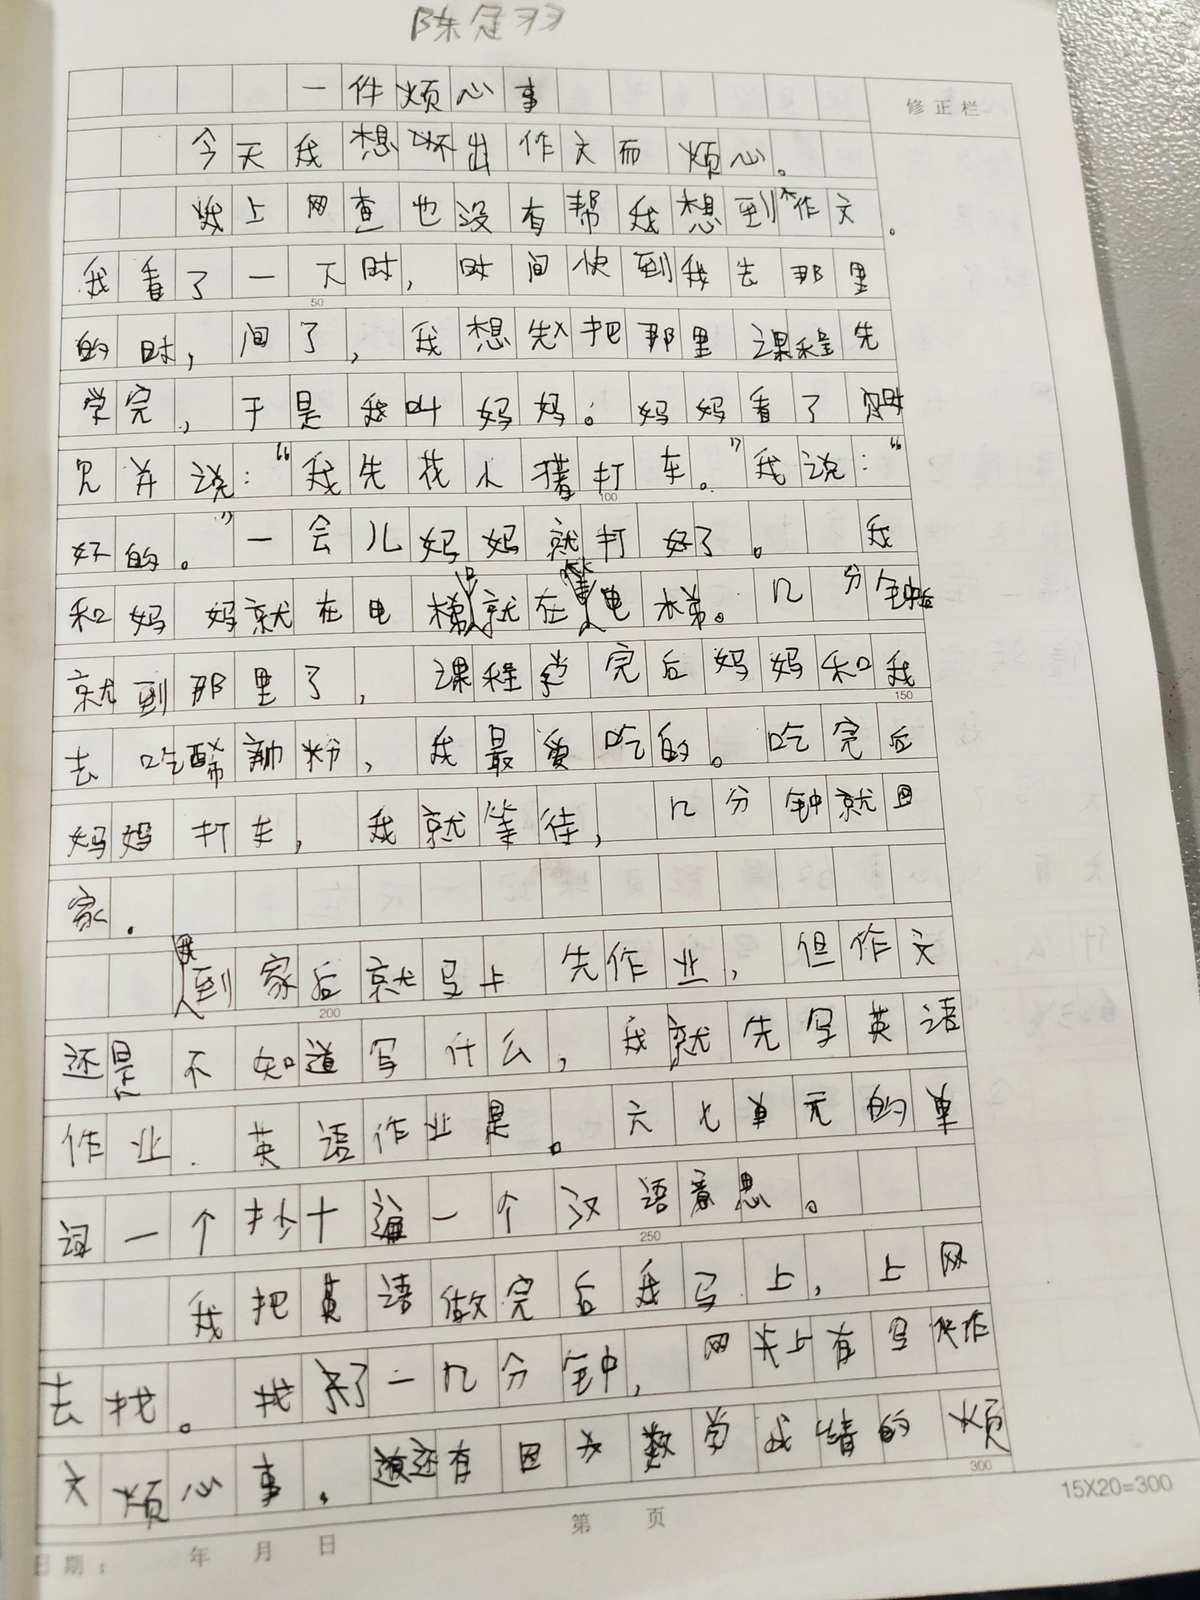 陈
一件烦心事
修正栏
今天我想不出作文而烦心。
我上网查也没有帮我想到作文。
我看了一下时,时间快到我去那里
50
的时,间了,我想先把那里课程先
学完,于是我叫妈妈。妈妈看了
见并说:“我先找人打车。”我说:“
100
好的。”一会儿妈妈就打好了。我
和妈妈就在电梯就在电梯。几分钟后
就到那里了,课程学完后妈妈和我
150
去吃酸辣粉,我最爱吃的。吃完后
妈妈打车,我就等待,几分钟就回
家.
我到家后就马上先作业,但作文
200
还是不知道写什么,我就先写英语
作业.英语作业是。六七单元的单
词一个抄十遍一个汉语意思。
250
我把英语做完后我马上,上网
去找。找了一几分钟,网头上有写作
文烦心事.还有因为数学成绩的烦
300
15X20=300
日期: 年 月 日
第 页